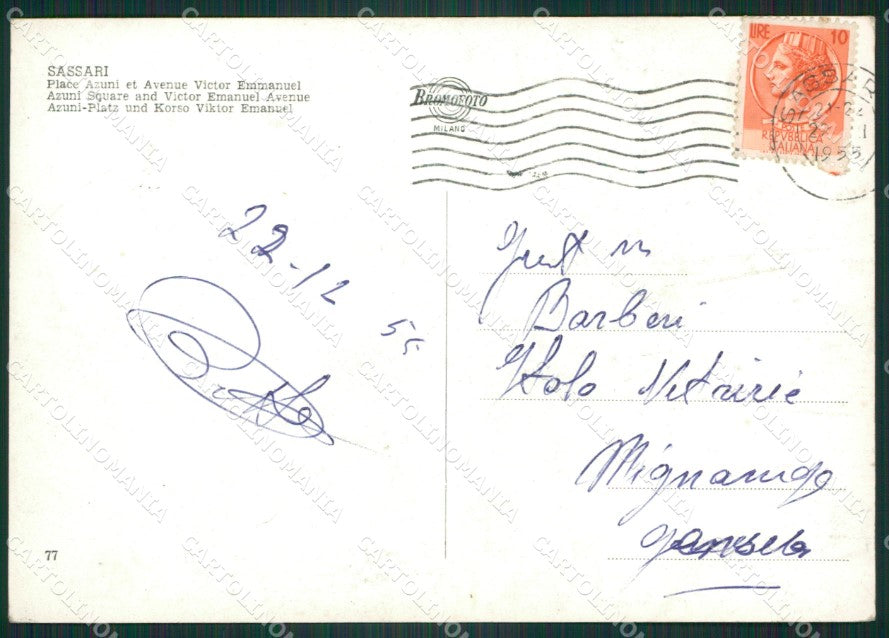 SASSARI
Place Azuni et Avenue Victor Emmanuel
Azuni Square and Victor Emanuel Avenue
Azuni-Platz und Korso Viktor Emanuel
BROMOFOTO
MILANO
LIRE 10
REPVBBLICA
ITALIANA
SASSARI
1955
22-12
55
Barberi
Italo
Mignanego
77
CARTOLINOMANIA